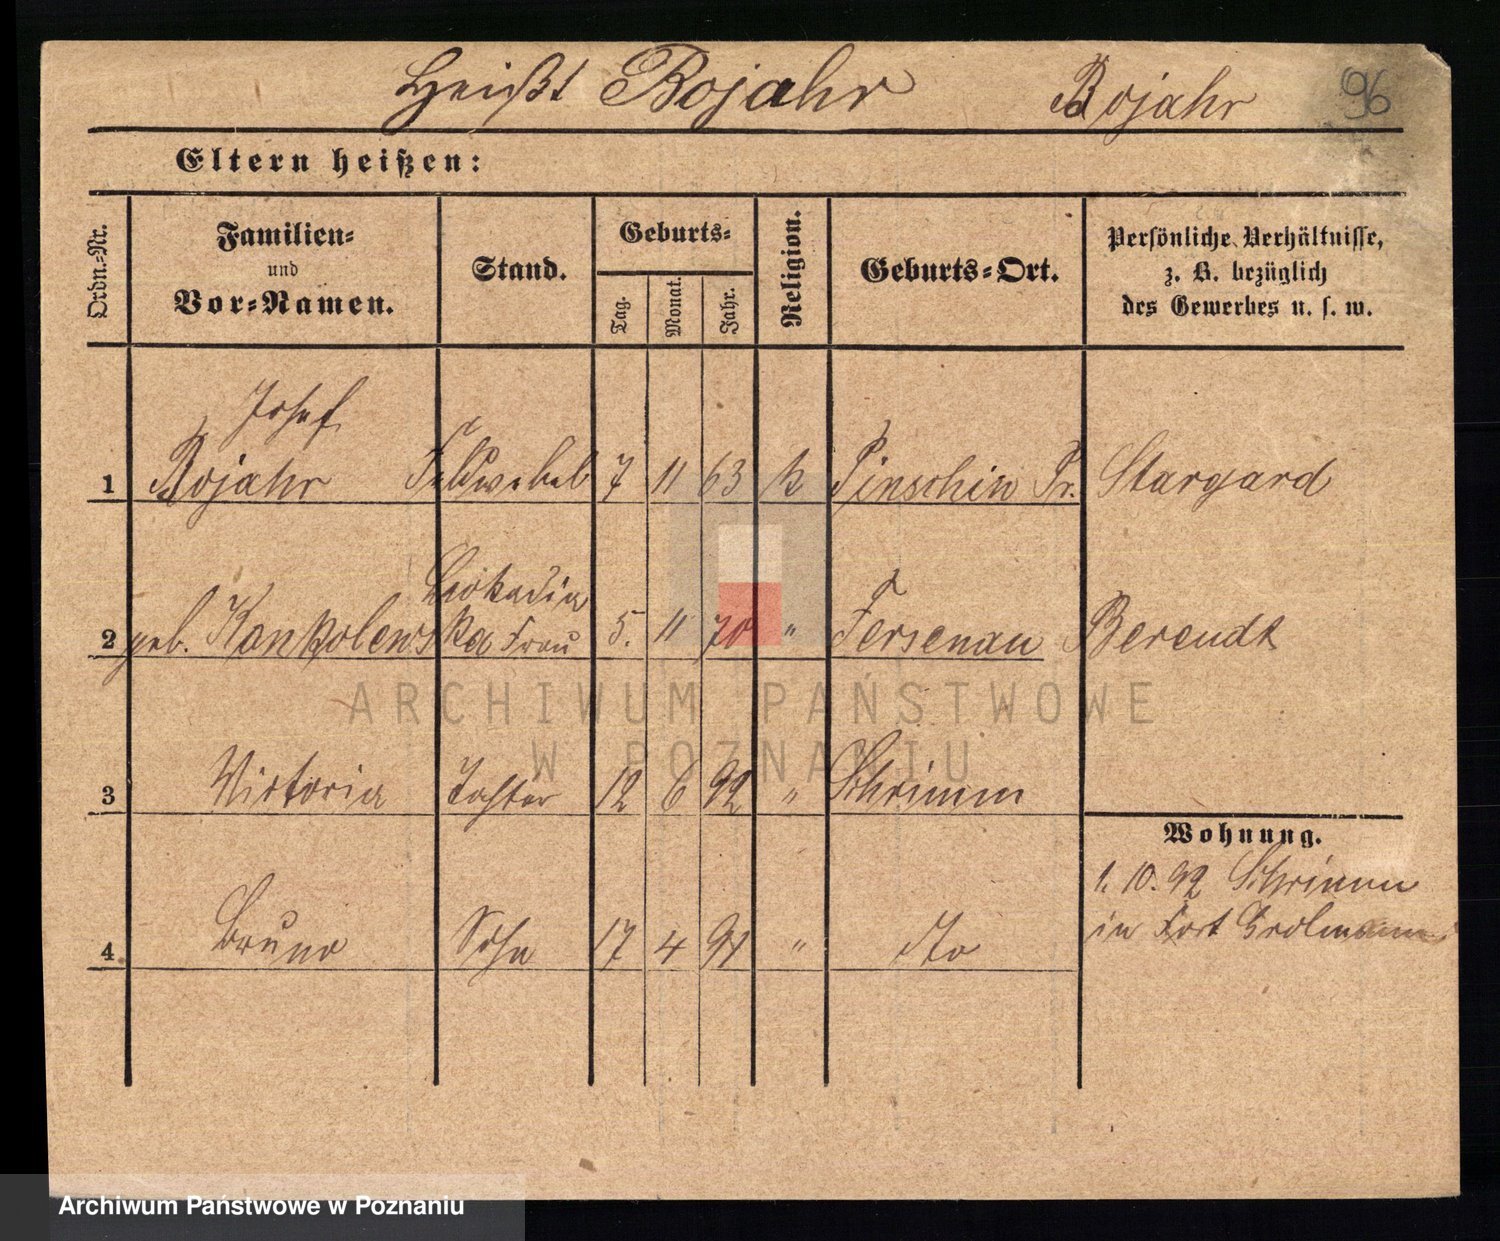 Heißt Bojahr Bojahr 96
Eltern heißen:
Ordn.-Nr.
Familien-
und
Vor-Namen.
Stand.
Geburts-
Tag.
Monat.
Jahr.
Religion.
Geburts-Ort.
Persönliche Verhältnisse,
z. B. bezüglich
des Gewerbes u. s. w.
Josef
1 Bojahr Feldwebel 7 11 63 k Pinschin Pr. Stargard
Leokadia
2 geb. Kankolewska Frau 5. 11 70 " Fersenau Berendt
3 Victoria Tochter 12 6 92 " Schrimm
4 Bruno Sohn 17 4 91 " dto
Wohnung.
1. 10. 92 Schrimm
in Fort Grolmann
ARCHIWUM PAŃSTWOWE
W POZNANIU
Archiwum Państwowe w Poznaniu